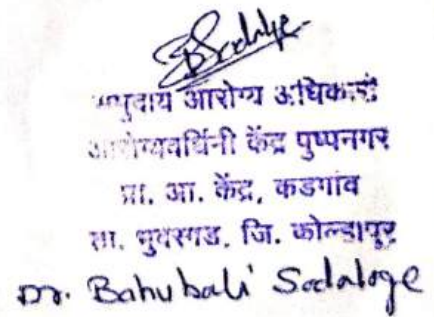 BSadalge
समुदाय आरोग्य अधिकारी
आरोग्यवर्धिनी केंद्र पुष्पनगर
प्रा. आ. केंद्र, कडगांव
ता. भुदरगड, जि. कोल्हापूर
Dr. Bahubali Sadalage